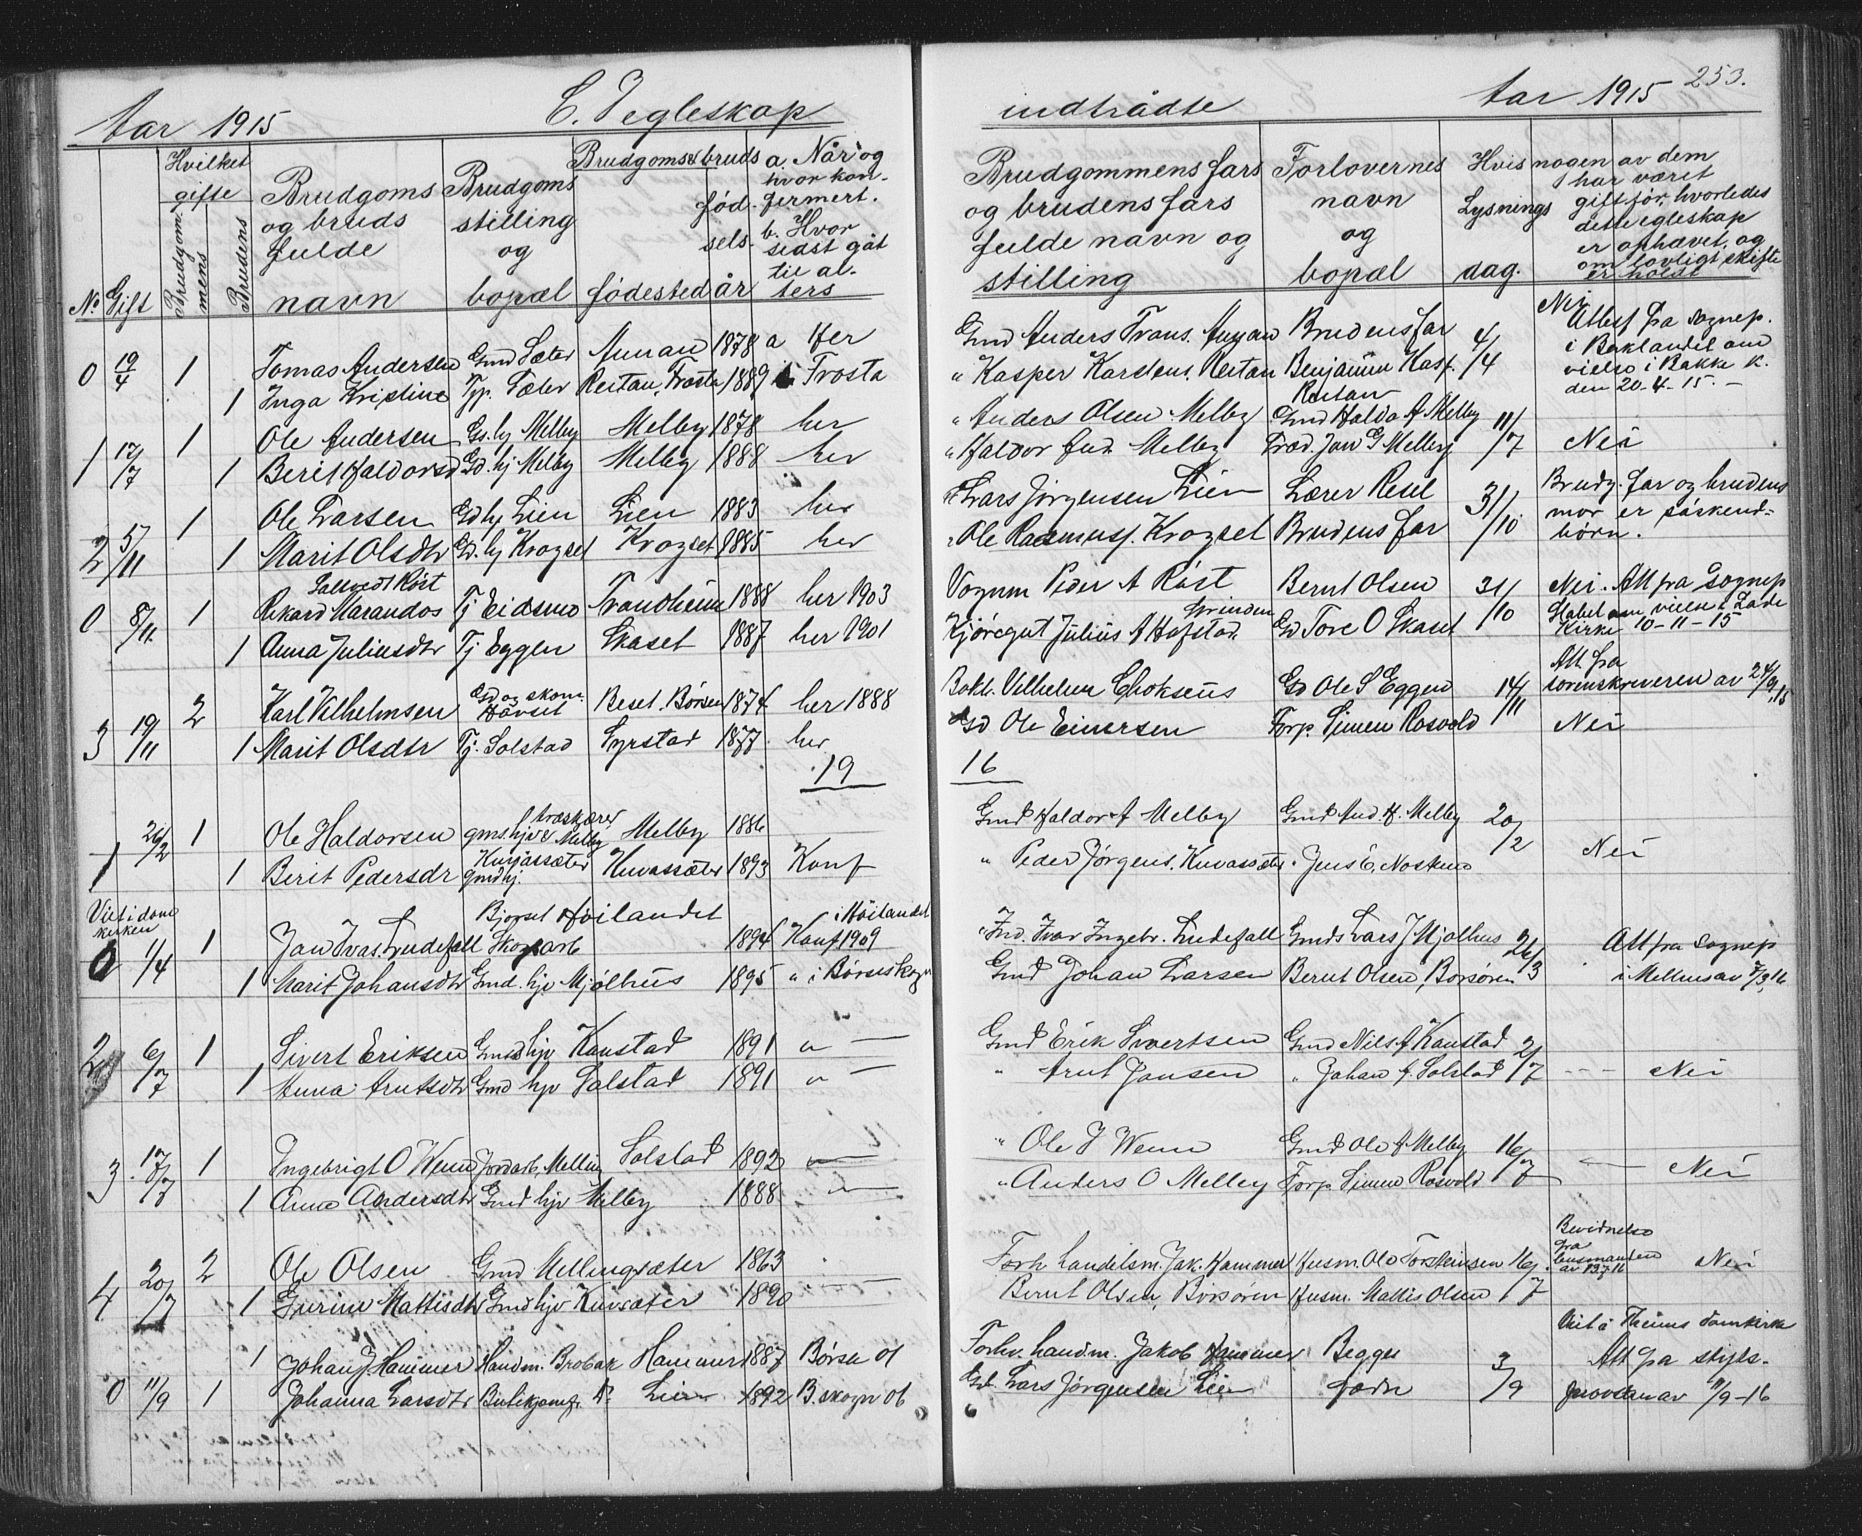 Aar 1915 C. Vegleskap
No Gift Hvilket gifte Brudgommens Brudens
Brudgoms og bruds fulde navn
Brudgoms stilling og bopæl
Brudgoms & bruds fødested fødselsår
a Når og hvor konfermert. b. Hvor sidst gåt til alters
0 19/4 1 Tomas Andersen Gmd Sæter Aunan 1878 a Her
1 Inga Kristine Sæter Reitan, Frosta 1889 Frosta
1 17/7 1 Ole Andersen Gs. hj Melby Melby 1878 her
1 Berit Haldorsd Gd. hj Melby Melby 1888 her
2 5/11 1 Ole Larsen Gd hj Lien Lien 1883 her
1 Marit Olsdtr Gd. hj Krogset Krogset 1885 her
0 8/11 1 Rikard Marandos Røst Tj Eidsmo Trondheim 1888 her 1903
1 Anna Juliusdtr Tj Eggen Skaset 1887 her 1901
3 19/11 2 Karl Vilhelmsen Gd og skom. Håvset Beset. Børsen 1874 her 1888
1 Marit Olsdtr Tj. Solstad Syrstad 1877 her
19
1 26/2 1 Ole Haldorsen gms. hjv Melby Melby 1886
1 Berit Pedersdr Kuvassæter gmd hj. Kuvassæter 1893 Konf
Viet i dom kirken
0 1/4 1 Jan Ivars. Lindefall Skogarb Bjørset Høilandet 1894 Konf 1909 i Høilandet
1 Marit Johansdtr Gmd. hjv Mjølhus 1895 " i Børseskogn
2 6/7 1 Sivert Eriksen Gmds hjv Kaustad 1891 " —
1 Anna Arntsdtr Gmd hjv Solstad 1891 " —
3 17/7 1 Ingebrigt O Wenn Jordarb. Melling Solstad 1892 —
1 Anne Andersdtr Gmd hjv Melby 1888 —
4 20/7 2 Ole Olsen Gmd Mellingsæter 1863
1 Gurine Mattisdtr Gmd hjv Kuvsæter 1890
1 Johan J. Hammer Handm. Brobak Hammer 1887 Børsa ol
0 11/9 1 Johanna Larsdtr Lien 1892 B. skogn ob
indtrådte Aar 1915 253.
Brudgommens fars og brudens fars fulde navn og stilling
Forlovernes navn og bopæl
Lysnings dag.
Hvis nogen av dem har været gift før, hvorledes dette egteskap er ophævet, og om lovligt skifte er holdt
Gmd Anders Frans. Aunan Brudens far 4/4 Nei Attest fra sognep. i Baklandet om vielse i Bakke k. den 20-4-15. —
" Kasper Karstens. Reitan Benjamin Kasp. Reitan
" Anders Olsen Melby Gmd Haldo A Melby 11/7 Nei
" Haldor And. Melby Fræd. Jan G Melby
Lars Jørgensen Lien Lærer Resel 31/10 Brudg. far og brudens mor er søskendebørn.
" Ole Rasmuss. Krogset Brudens far
Vognm Peder A Røst Bernt Olsen 31/10 Nei. Att fra Sognep Stabel om vielse i Lade Kirke 10-11-15
Kjøregut Julius A Hofstad. Grinden Gd Tore O Skaset
Bokh. Vilhelm Gd Ole S Eggen 14/11 Att. fra sorenskriveren av 24/9 15
Gd Ole Einersen Forp. Simen Rosvold Nei
16
Gmd Haldor A Melby Gmd And. H. Melby 20/2 Nei
" Peder Jørgens. Kuvassæter. Jens E, Moskmo
" Ind. Ivar Ingebr. Lindefall Gmds Lars J Mjølhus 26/3 Att fra Sognep i Melhus av 7/3, 16
Gmd Johan Larsen Bernt Olsen, Børsøren
Gmd Erik Sivertsen Gmd Nils A Kaustad 2/7 --- Nei
" Arnt Jansen " Johan A. Solstad
" Ole J Wenn Gmd Ole A Melby 16/7 — Nei
" Anders O Melby Forp Simen Rosvold
Forh handelsm. Jak. Hammer Husm. Ole Torstensen 16/7 Bevidnelse fra lensmanden av 13.7 16 Nei
Bernt Olsen, Børsøren Husm. Mattis Olsen
Forhv. handm. Jakob Hammer Begges fædre 3/9 Viet i Theims Domkirke Att fra stifts- provsten av 11/9-16
Gd. Lars Jørgensen Lien